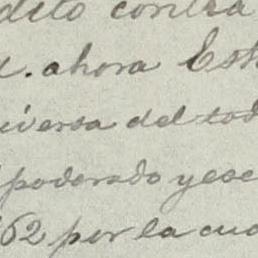 dito contra
d. ahora Est
iversa del tod
poderado y ese
62 por la cua